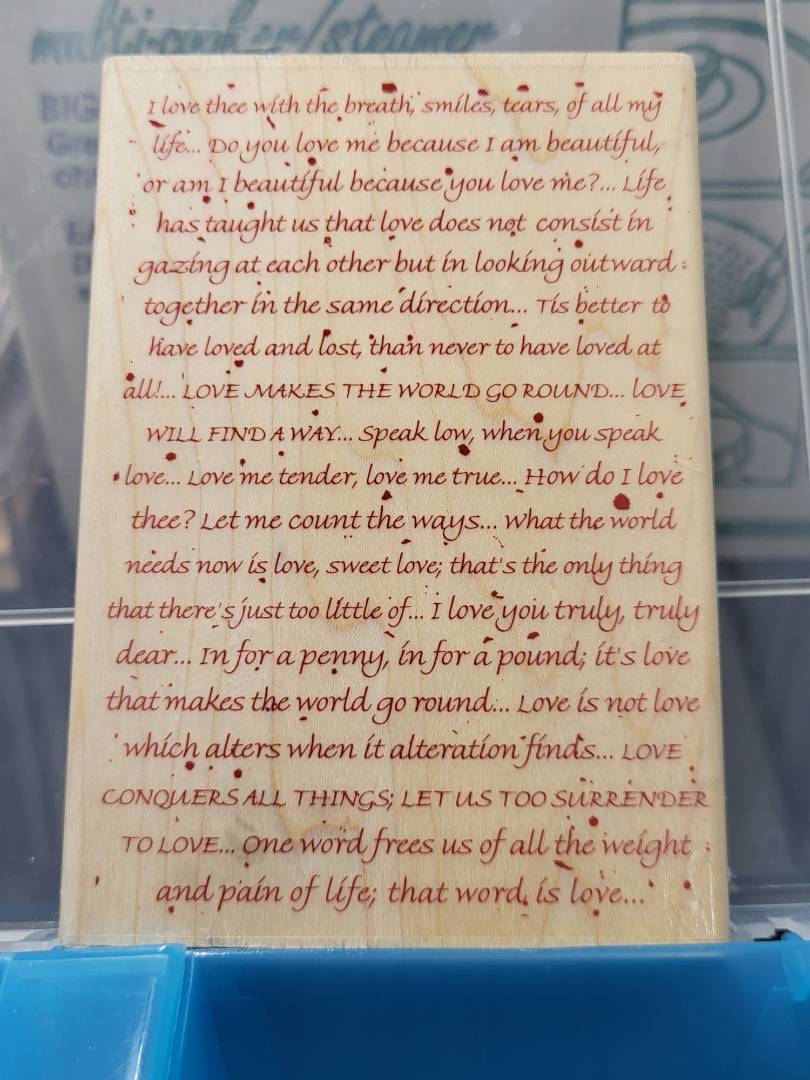 multi-cooker/steamer
I love thee with the breath, smiles, tears, of all my
life... Do you love me because I am beautiful,
or am I beautiful because you love me?... Life
has taught us that love does not consist in
gazing at each other but in looking outward
together in the same direction... Tis better to
have loved and lost, than never to have loved at
all!... LOVE MAKES THE WORLD GO ROUND... LOVE
WILL FIND A WAY... Speak low, when you speak
love... Love me tender, love me true... How do I love
thee? Let me count the ways... What the world
needs now is love, sweet love; that's the only thing
that there's just too little of... I love you truly, truly
dear... In for a penny, in for a pound; it's love
that makes the world go round... Love is not love
which alters when it alteration finds... LOVE
CONQUERS ALL THINGS; LET US TOO SURRENDER
TO LOVE... One word frees us of all the weight
and pain of life; that word is love...